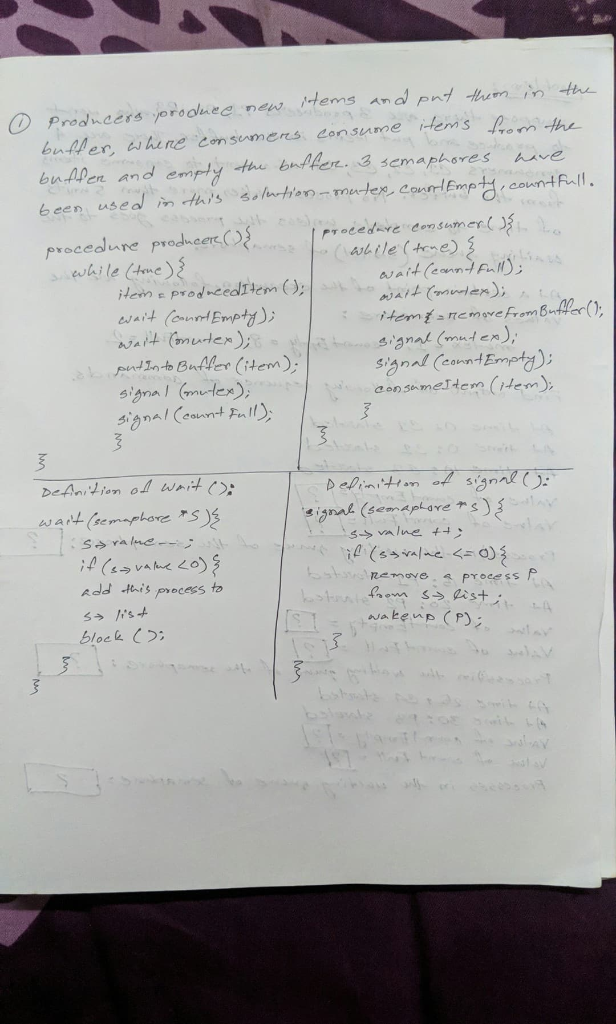 ① Producers produce new items and put them in the
buffer, where consumers consume items from the
buffer and empty the buffer. 3 semaphores have
been used in this solution - mutex, countEmpty, countFull.
procedure producer(){
while (true){
item = producedItem();
wait (countEmpty);
wait (mutex);
putIntoBuffer (item);
signal (mutex);
signal (countFull);
}
}
procedure consumer(){
while (true) {
wait (countFull);
wait (mutex);
item = removeFromBuffer();
signal (mutex);
signal (countEmpty);
consumeItem (item);
}
}
Definition of wait():
wait (semaphore *S){
s→value--;
if (s→value <0){
add this process to
s→ list
block ();
}
}
Definition of signal():
signal (semaphore *s) {
s→value ++;
if (s→value <=0){
remove a process P
from s→ list;
wakeup (P);
}
}